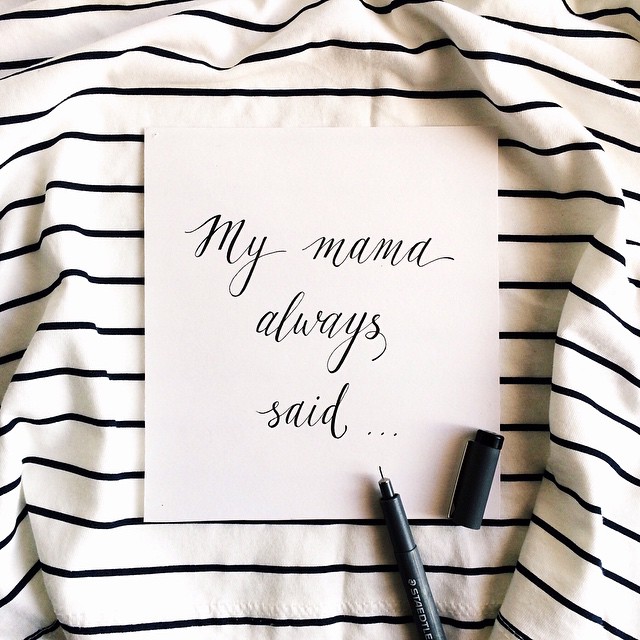 My mama
always
said ...
STAEDTLER